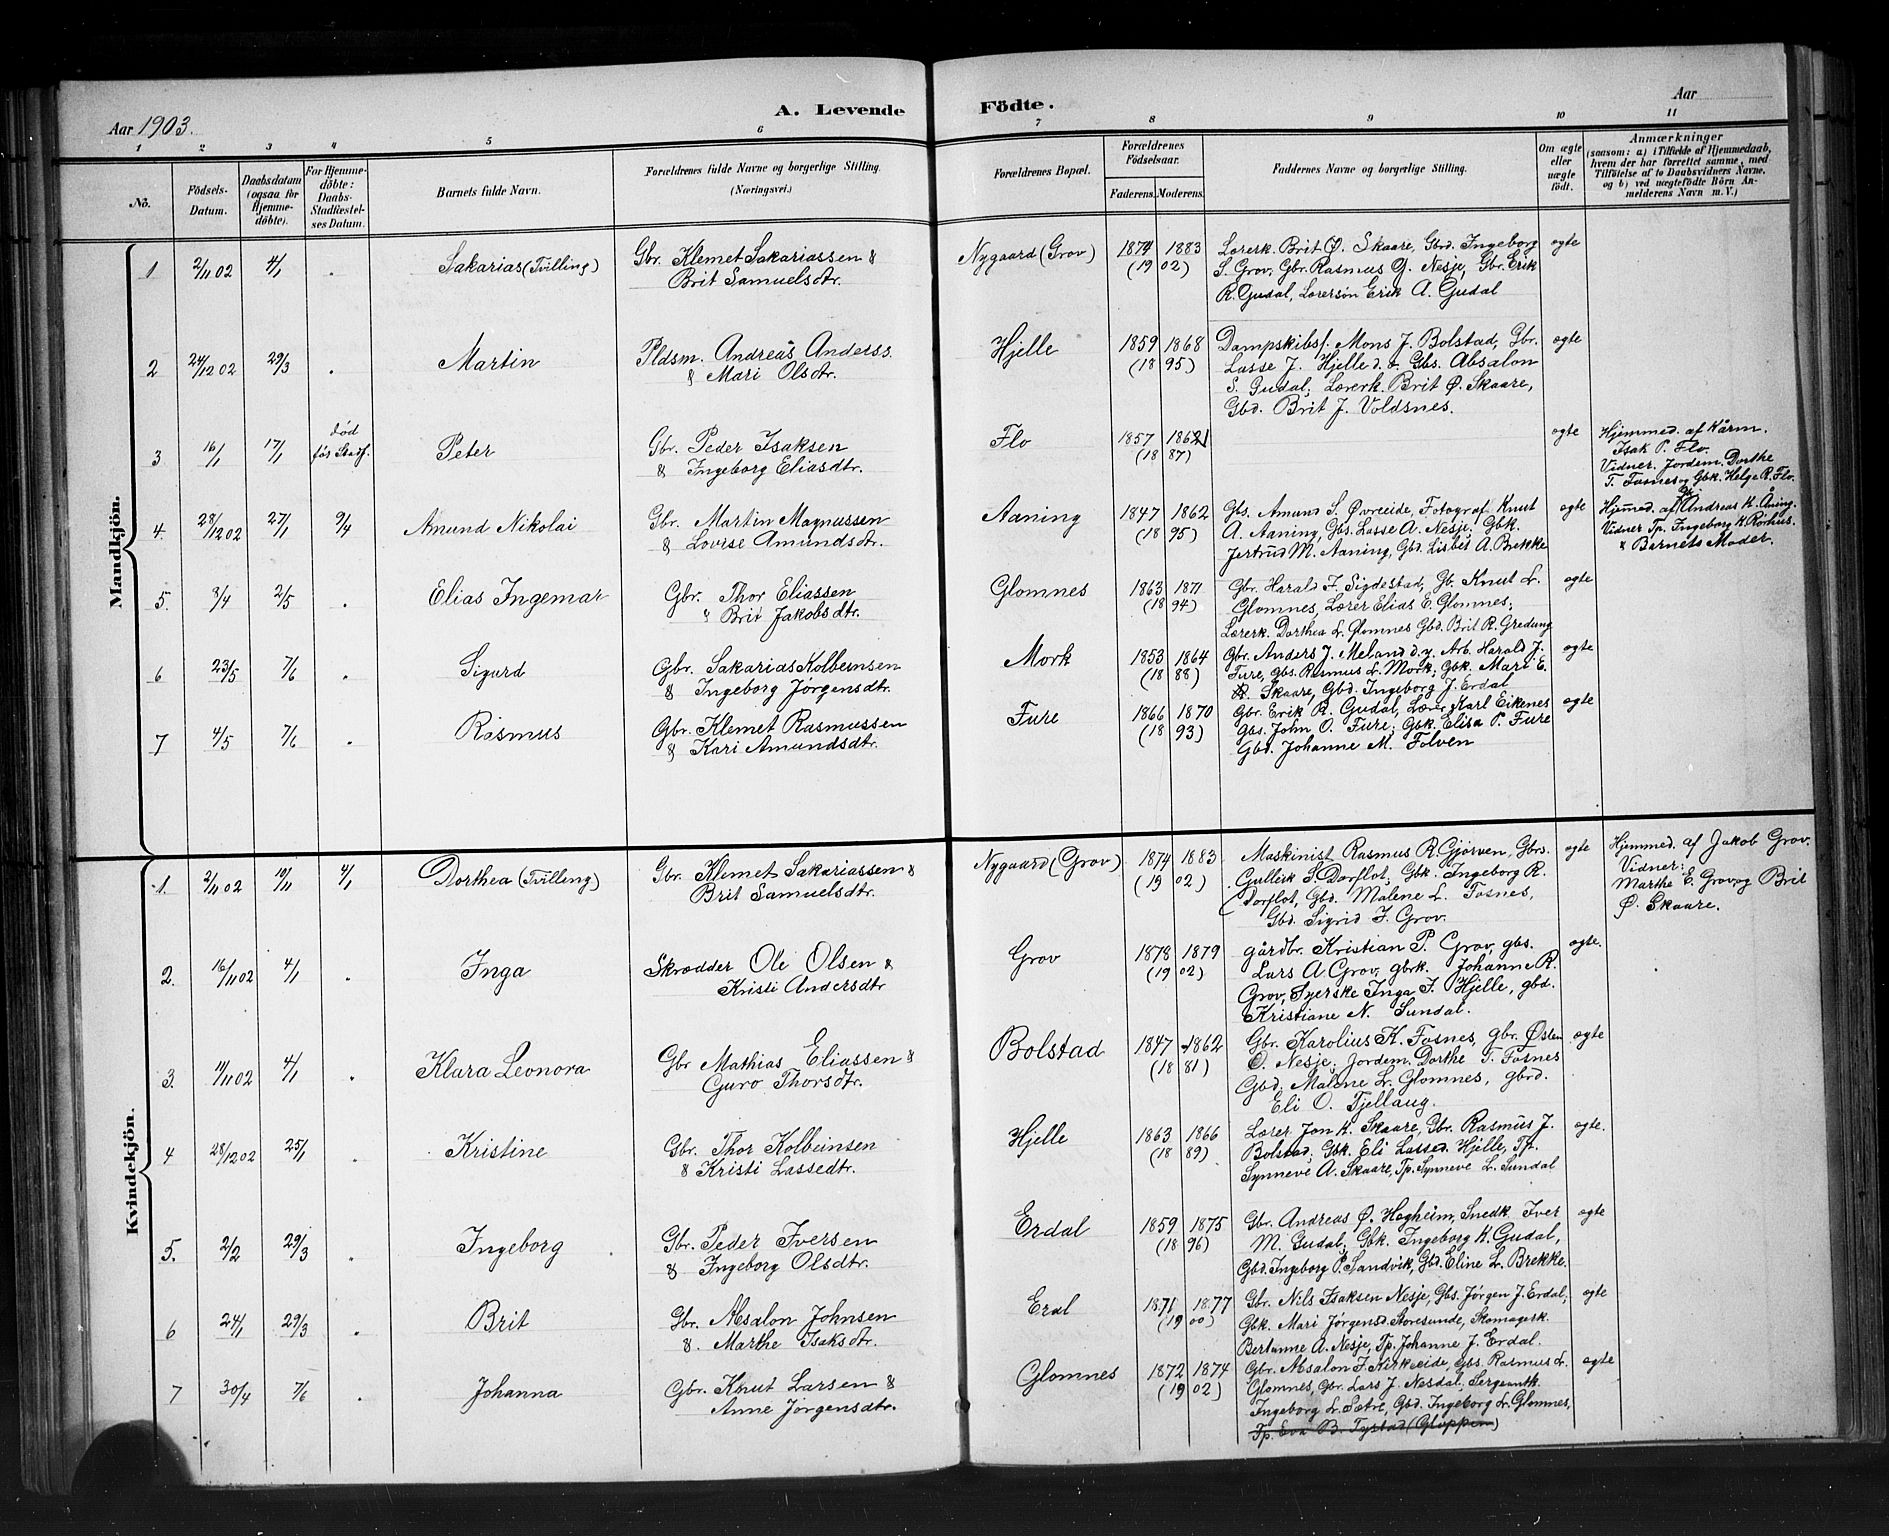 Aar 1903.
A. Levende Födte.
Aar
1 2 3 4 5 6 7 8 9 10 11
No.
Födsels-Datum.
Daabsdatum (ogsaa for Hjemme-döbte).
For Hjemme-döbte: Daabs-Stadfæstel-ses Datum.
Barnets fulde Navn.
Forældrenes fulde Navne og borgerlige Stilling. (Næringsvei.)
Forældrenes Bopæl.
Forældrenes Födselsaar.
Faderens. Moderens.
Faddernes Navne og borgerlige Stilling.
Om ægte eller uægte födt.
Anmærkninger
(saasom: a) i Tilfælde af Hjemmedaab, hvem der har forrettet samme, med Tilföielse af to Daabsvidners Navne, og b) ved uægtefödte Börn Anmelderens Navn m. V.)
Mandkjön.
1 2/11 02 4/1 " Sakarias (Tvilling) Gbr. Klemet Sakariassen &
Brit Samuelsdtr.
Nygaard (Grov) 1874 1883
(19 02)
Lærerk. Brit Ø. Skaare, Gbd. Ingeborg
S. Grov, Gbr. Rasmus O. Nesje, Gbr. Erik
R. Gudal, Lærersøn Erik A. Gudal
ægte
2 24/12 02 29/3 " Martin Pldsm. Andreas Anderss.
& Mari Olsdtr.
Hjelle 1859 1868
(18 95)
Dampskibsf. Mons J. Bolstad, Gbr.
Lasse J. Hjelle d.æ. Gbs. Absalon
S. Gudal, Lærerk. Brit Ø. Skaare,
Gbd. Brit J. Voldsnes.
ægte
3 16/1 17/1 død
før Stadf.
Peter Gbr. Peder Isaksen
& Ingeborg Eliasdtr.
Flo 1857 1862
(18 87)
ægte
Hjemmed. af Kårm.
Isak P. Flo.
Vidner. Jordem. Dorthe
T. Tosnes og Gbk. Helge R. Flo.
4. 28/12 02 27/1 9/4 Amund Nikolai Gbr. Martin Magnussen
& Lovise Amundsdtr.
Aaning 1847 1862
(18 95)
Gbs. Amund S. Øvreeide, Fotograf Knut
A. Aaning, Gbs. Lasse A. Nesje, Gbk.
Jertrud M. Aaning, Gbd. Lisbet A. Brekke
ægte
Hjemmed. af Andreas K. Åning.
Vidner Tp. Ingeborg K. Rorhus.
& Barnets Moder.
5. 3/4 2/5 " Elias Ingemar Gbr. Thor Eliassen
" Brit Jakobsdtr.
Glomnes 1863 1871
(18 94)
Gbr. Harald J. Sigdestad, Gb. Knut L.
Glomnes, Lærer Elias E. Glomnes,
Lærerk. Dorthea L. Glomnes Gbd. Brit R. Gredung
ægte
6 23/5 7/6 " Sigurd Gbr. Sakarias Kolbeinsen
& Ingeborg Jørgensdtr.
Mork 1853 1864
(18 88)
Gbr. Anders J. Meland d.y. Arb. Harald J.
Fure, gbs. Rasmus L. Mork, Gbk. Mari E.
Skaare, Gbd. Ingeborg J. Erdal
ægte
7 4/5 7/6 " Rasmus Gbr. Klemet Rasmussen
& Kari Amundsdtr.
Fure 1866 1870
(18 93)
Gbr. Erik R. Gudal, Lærer Karl Eikenes
Gbs. John O. Fure, Gbk. Elisa P. Fure
Gbd. Johanne M. Folven
ægte
Kvindekjön.
1. 2/11 02 10/11 4/1 Dorthea (Tvilling) Gbr. Klemet Sakariassen &
Brit Samuelsdtr.
Nygaard (Grov) 1874 1883
(19 02)
Maskinist Rasmus R. Gjørven, Gbrs.
Gulleik S. Dorflot, Gbk. Ingeborg R.
Dorflot, Gbd. Malene L. Tosnes,
Gbd. Sigrid J. Grov.
ægte
Hjemmed. af Jakob Grov.
Vidner:
Marthe E. Grov og Brit
Ø. Skaare.
2. 16/11 02 4/1 " Inga Skrædder Ole Olsen &
Kristi Andersdtr
Grov 1878 1879
(19 02)
gårdbr. Kristian P. Grov, gbs.
Lars A. Grov, gbrk. Johanne R.
Grov, Syerske Inga J. Hjelle, gbd.
Kristiane N. Sundal.
ægte.
3. 11/11 02 4/1 " Klara Leonora Gbr Mathias Eliassen &
Guro Thorsdtr.
Bolstad 1847 1862
(18 81)
Gbr. Karolius K. Tosnes, gbr. Østen
O. Nesje, Jordem. Dorthe T. Tosnes
Gbd. Malene L. Glomnes, gbrd.
Eli O. Tjellaug.
ægte
4 28/12 02 25/1 " Kristine Gbr. Thor Kolbeinsen
& Kristi Lassedtr.
Hjelle 1863 1866
(18 89)
Lærer Jon K. Skaare, Gbr. Rasmus J.
Bolstad, Gbk. Eli Lassed. Hjelle, Tp.
Synneve A. Skaare, Tp. Synneve L. Sundal
ægte.
5. 2/2 29/3 " Ingeborg Gbr. Peder Iversen
& Ingeborg Olsdtr.
Erdal 1859 1875
(18 96)
Gbr. Andreas Ø. Hegheim, Snedk. Iver
M. Gudal, Gbk. Ingeborg K. Gudal,
Gbd. Ingeborg P. Sandvik, Gbd. Eline L. Brekke.
ægte
6 24/1 29/3 " Brit Gbr. Absalon Johnsen
& Marthe Isaksdtr.
Eral 1871 1877
(19 00)
Gbr. Nils Isaksen Nesje, Gbs. Jørgen J. Erdal,
Gbk. Mari Jørgensd. Storesunde, Skomagersk.
Bertinne A. Nesje, Tp. Johanne J. Erdal.
ægte
7 30/4 7/6 " Johanna Gbr. Knut Larsen &
Anne Jørgensdtr.
Glomnes 1872 1874
(19 02)
Gbr. Absalon J. Kirkeeide, Gbs. Rasmus L.
Glomnes, Gbr. Lars J. Nesdal, Sergeantk.
Ingeborg L. Sætre, Gbd. Ingeborg L. Glomnes,
Tp. Eva B. Tystad (Gloppen)
ægte